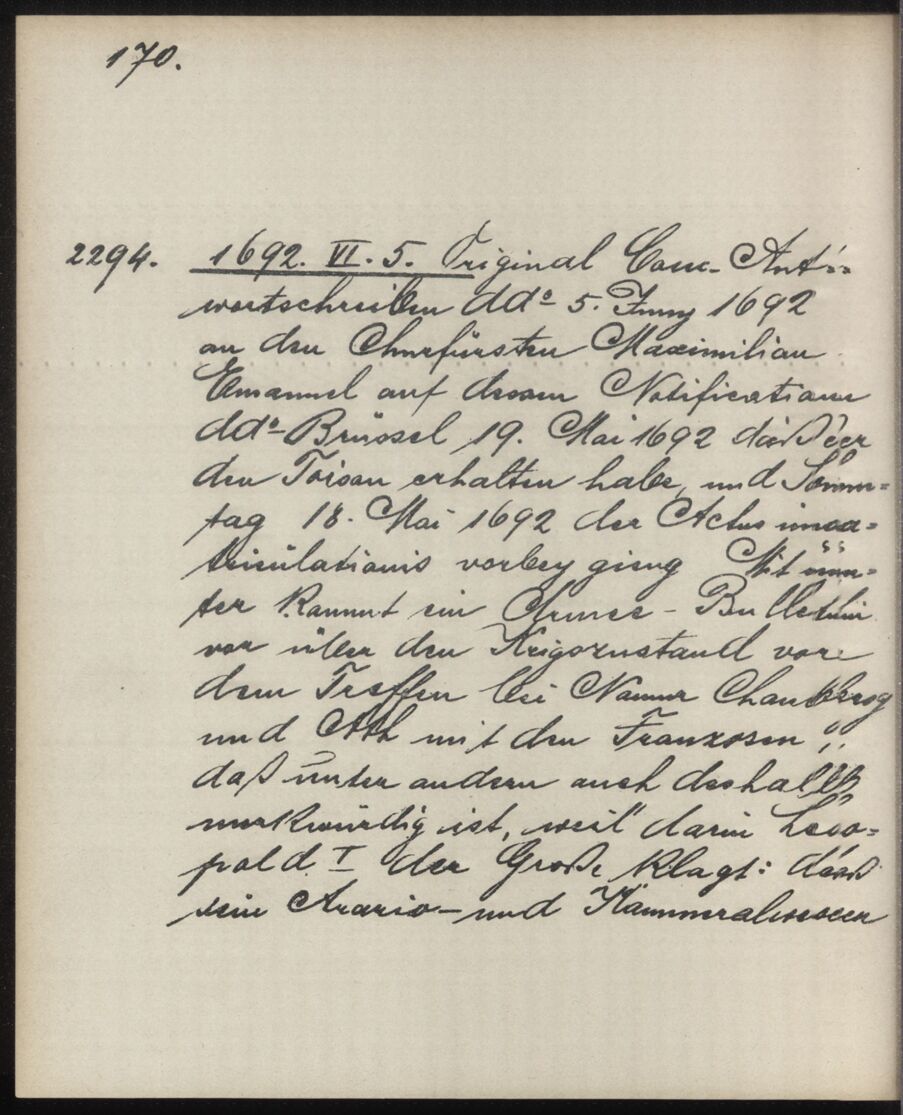 170.
2294. 1692. VI. 5. Original Conc. Ant=
wortschreiben dd° 5. Juny 1692
an den Churfürsten Maximilian
Emanuel auf dessen Notification
dd° Brüssel 19. Mai 1692 daß er
den Toison erhalten habe, und Sonn=
tag 18. Mai 1692 der Actus imma=
triculationis vorbey gieng Mit
ter kommt ein Armee-Bulletin
vor über den Krigszustand vor
dem Treffen bei Namur
und Ath mit den Franzosen,
daß unter andern auch deshalb
merkwürdig ist, weil darin Leo=
pold I der Große klagt: daß
sein Arario- und Kammeralwesen